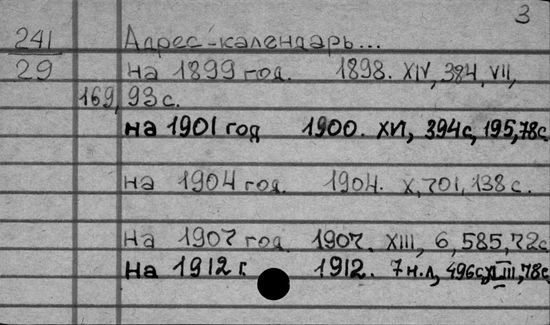 3
241
29
Адрес-календарь...
на 1899 год. 1898. XIV, 384, VII,
169, 93 с.
на 1901 год 1900. XVI, 394с, 195, 78с
на 1904 год. 1904. X, 701, 138 с.
на 1907 год. 1907. XIII, 6, 585, 72с
на 1912 г. 1912. 7 н.л, 496с, XLIII, 78с